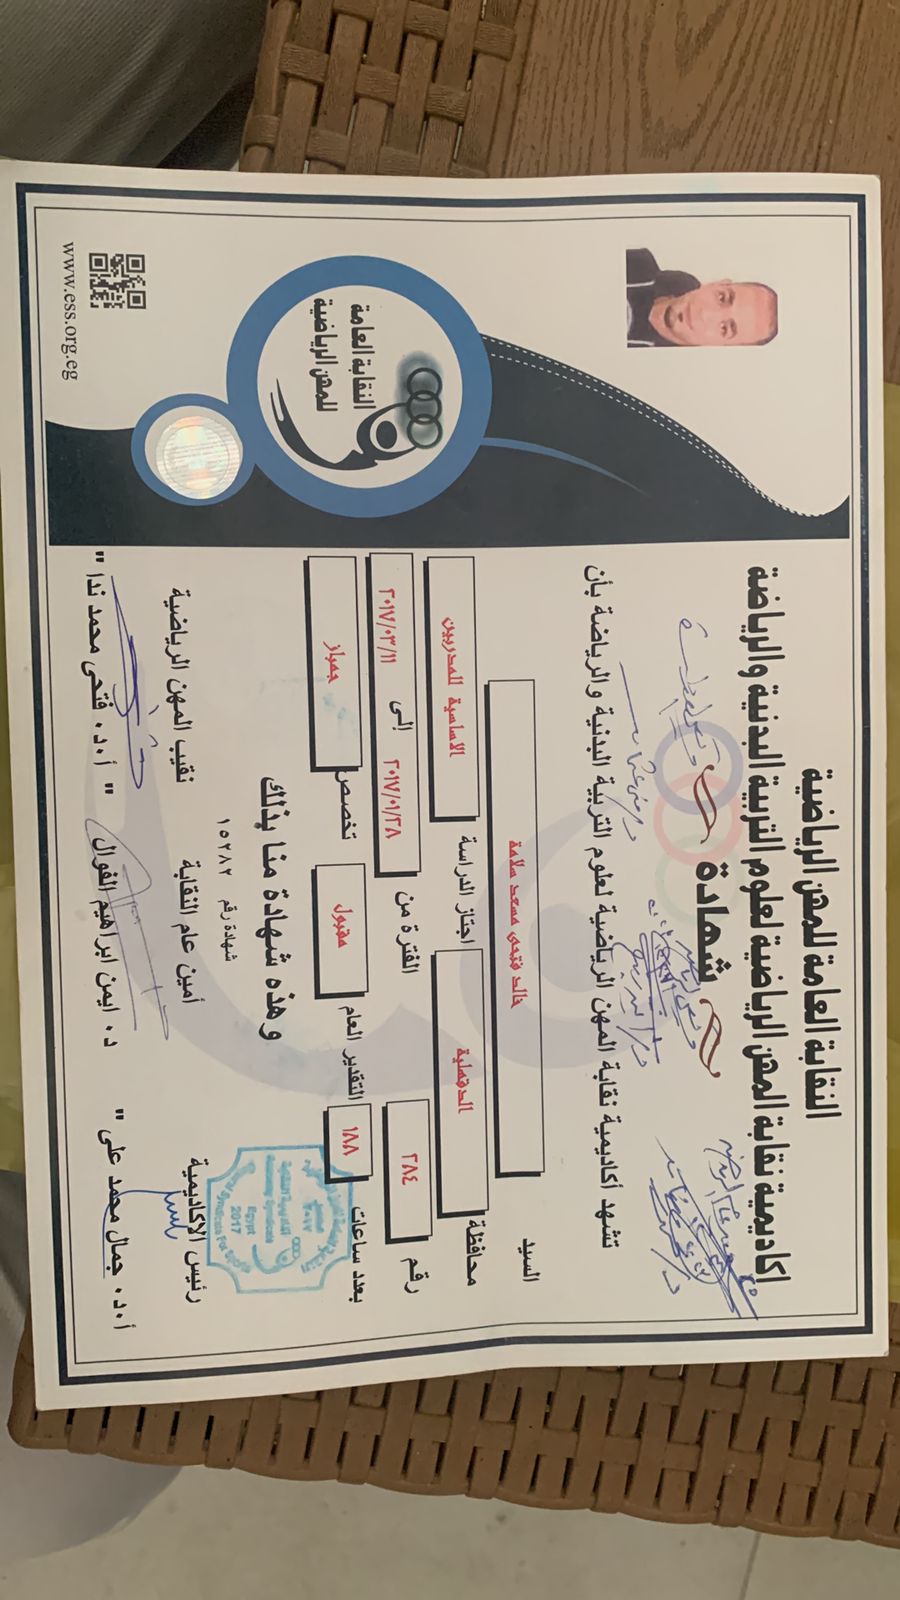 النقابة العامة للمهن الرياضية
اكاديمية نقابة المهن الرياضية لعلوم التربية البدنية والرياضة
شهادة
تشهد أكاديمية نقابة المهن الرياضية لعلوم التربية البدنية والرياضة بأن
السيد خالد فتحى مسعد سلامة
محافظة الدقهلية اجتاز الدراسة الاساسية للمدربين
رقم ٢٨٤ الفترة من ٢٠١٧/٠١/٢٨ إلى ٢٠١٧/٠٣/١١
بعدد ساعات ١٨٨ التقدير العام مقبول تخصص جمباز
وهذه شهادة منا بذلك
شهادة رقم ١٥٢٨٢
رئيس الأكاديمية أمين عام النقابة نقيب المهن الرياضية
أ.د. جمال محمد على " د. ايمن ابراهيم الفوال " أ.د. فتحى محمد ندا "
النقابة العامة
للمهن الرياضية
www.ess.org.eg
Egypt
2017